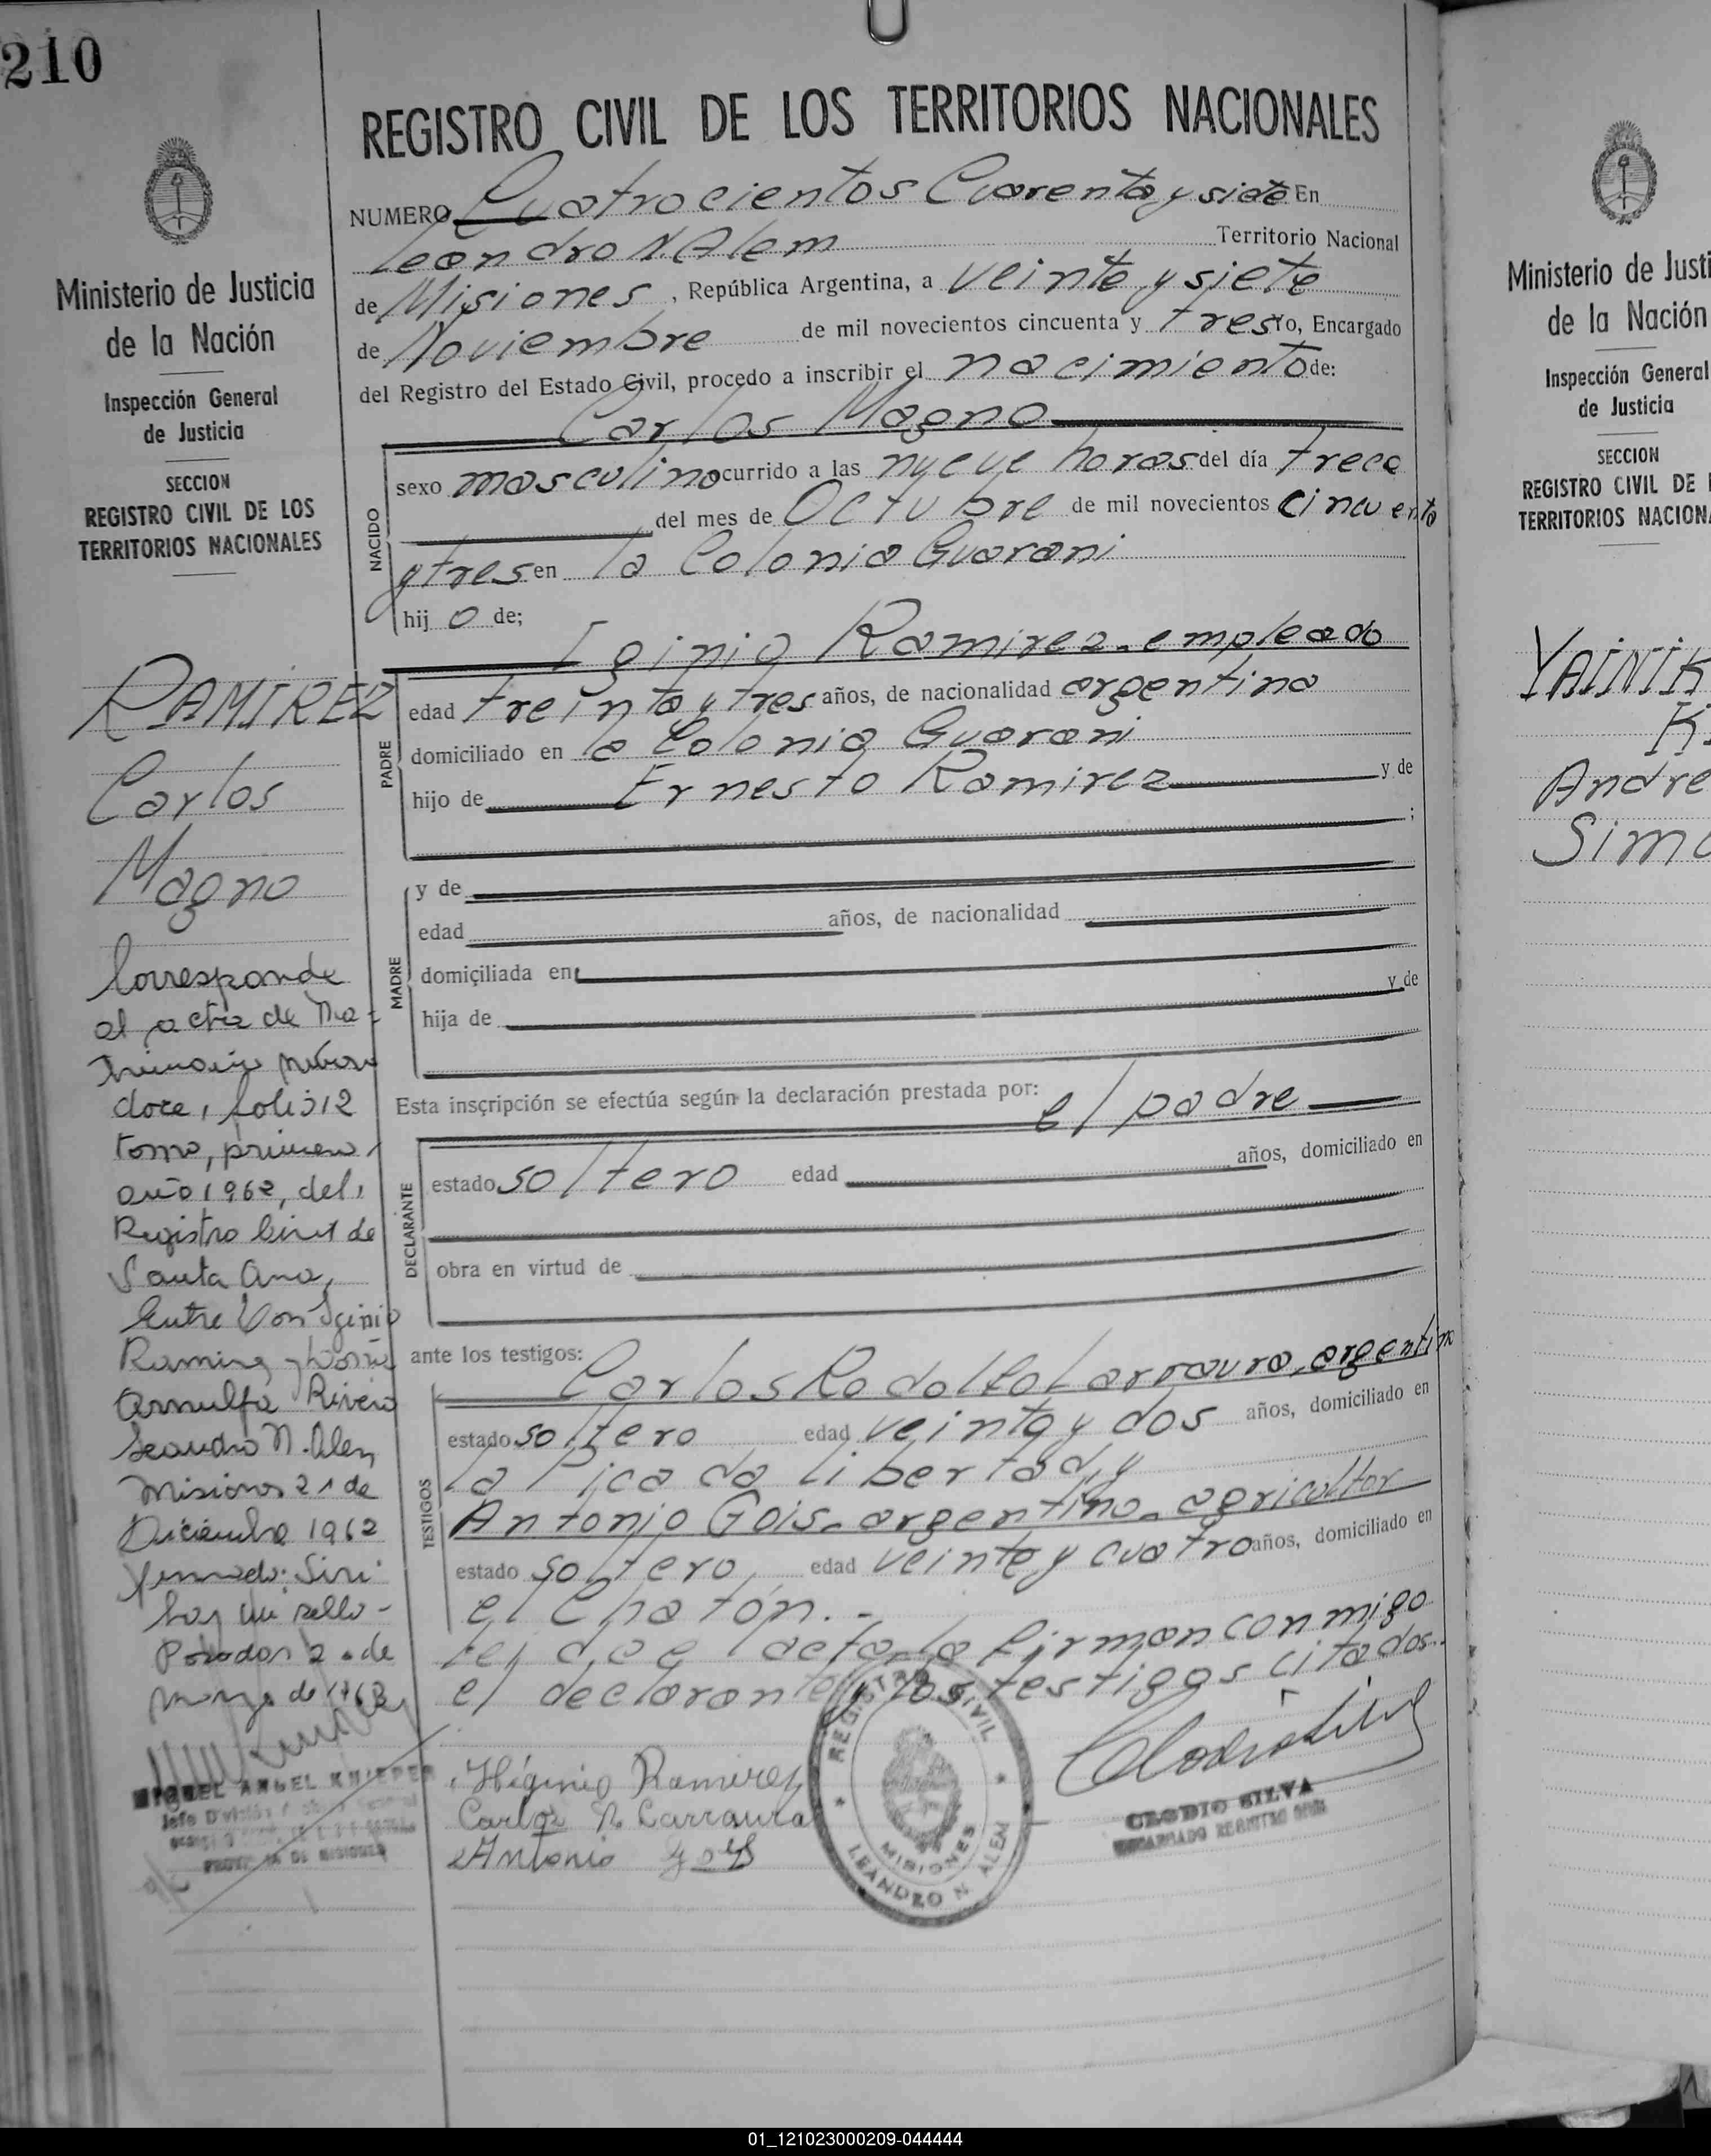 210
Ministerio de Justicia
de la Nación
Inspección General
de Justicia
SECCION
REGISTRO CIVIL DE LOS
TERRITORIOS NACIONALES
RAMIREZ
Carlos
Magno
Corresponde
al acta de Ma-
trimonio número
doce, folio 12
tomo, primero,
año 1962, del,
Registro Civil de
Santa Ana,
Entre Don Iginio
Ramirez y Doña
Arnulfa Rivero
Leandro N. Alem
Misiones 21 de
Diciembre 1962
firmado:
hay un sello-
Posadas 20 de
marzo de 1963
MIGUEL ANGEL KNIEPER
REGISTRO CIVIL DE LOS TERRITORIOS NACIONALES
NUMERO Cuatrocientos Cuarenta y siete En
Leandro N. Alem Territorio Nacional
de Misiones, República Argentina, a veinte y siete
de Noviembre de mil novecientos cincuenta y tres Yo, Encargado
del Registro del Estado Civil, procedo a inscribir el nacimiento de:
Carlos Magno
NACIDO
sexo masculino ocurrido a las nueve horas del día trece
del mes de Octubre de mil novecientos cincuenta
y tres en la Colonia Guarani
hij o de;
Iginio Ramirez.empleado
PADRE
edad treinta y tres años, de nacionalidad argentina
domiciliado en la Colonia Guarani
hijo de Ernesto Ramirez y de
;
MADRE
y de
edad años, de nacionalidad
domiciliada en
hija de y de
Esta inscripción se efectúa según la declaración prestada por:
el padre
DECLARANTE
estado soltero edad años, domiciliado en
obra en virtud de
ante los testigos:
Carlos Rodolfo Larraura, argentino
TESTIGOS
estado soltero edad veinte y dos años, domiciliado en
la Picada Libertad, y
Antonio Gois. argentino. agricultor
estado soltero, edad veinte y cuatro años, domiciliado en
el Chatón.-
Leida el acta la firman conmigo
el declarante y los testigos citados.
Higinio Ramirez
Carlos R Larraura
Antonio Gois
REGISTRO CIVIL
MISIONES
LEANDRO N ALEM
CLODIO SILVA
ENCARGADO REGISTRO CIVIL
Ministerio de Justi
de la Nación
Inspección General
de Justicia
SECCION
REGISTRO CIVIL DE
TERRITORIOS NACION
YAINIK
Andre
Simo
01_121023000209-044444